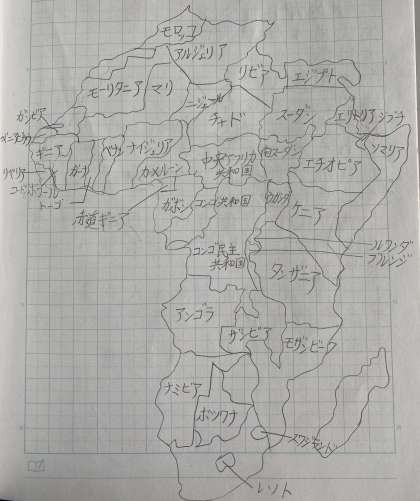 モロッコ
アルジェリア
リビア
エジプト
モーリタニア
マリ
ニジェール
チャド
スーダン
エリトリア
ジブチ
ガンビア
ギニアビサウ
ギニア
ガーナ
ベナン
ナイジェリア
カメルーン
中央アフリカ
共和国
南スーダン
エチオピア
ソマリア
リベリア
コートジボワール
トーゴ
赤道ギニア
ガボン
コンゴ共和国
ウガンダ
ケニア
コンゴ民主
共和国
ルワンダ
ブルンジ
タンザニア
アンゴラ
ザンビア
モザンビーク
ナミビア
ボツワナ
スワジランド
レソト